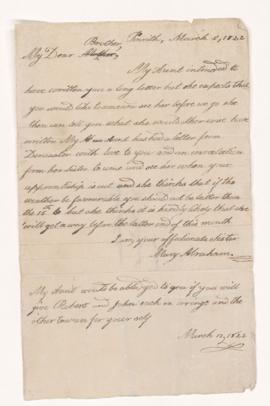 Penrith, March 5, 1822
Brother
My Dear Mother,
My Aunt intended to
have written you a long letter but she expects that
you would like to come in and see her before we go she
then can tell you what she would otherwise have
written My Aunt has had a letter from
with love to you and an invitation
from her sister to come and see her when your
apprenticeship is out and she thinks that if the
weather be favourable you should not be later than
the 15th but she thinks it is hardly likely that she
will get away before the latter end of this month
I am your affectionate sister
Mary Abraham.
My Aunt would be obliged to you if you will
give Robert and John each an orange and the
other two are for your self
March 12, 1822